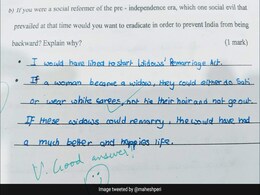 b) If you were a social reformer of the pre - independence era, which one social evil that
prevailed at that time would you want to eradicate in order to prevent India from being
backward? Explain why? (1 mark)
• I would have liked to start Widows' Remarriage Act.
• If a woman became a widow, they could either do Sati
or wear white sarees, not tie their hair and not go out.
If these widows could remarry, they would have had
a much better and happies life.
V. Good answer!
Image tweeted by @maheshperi